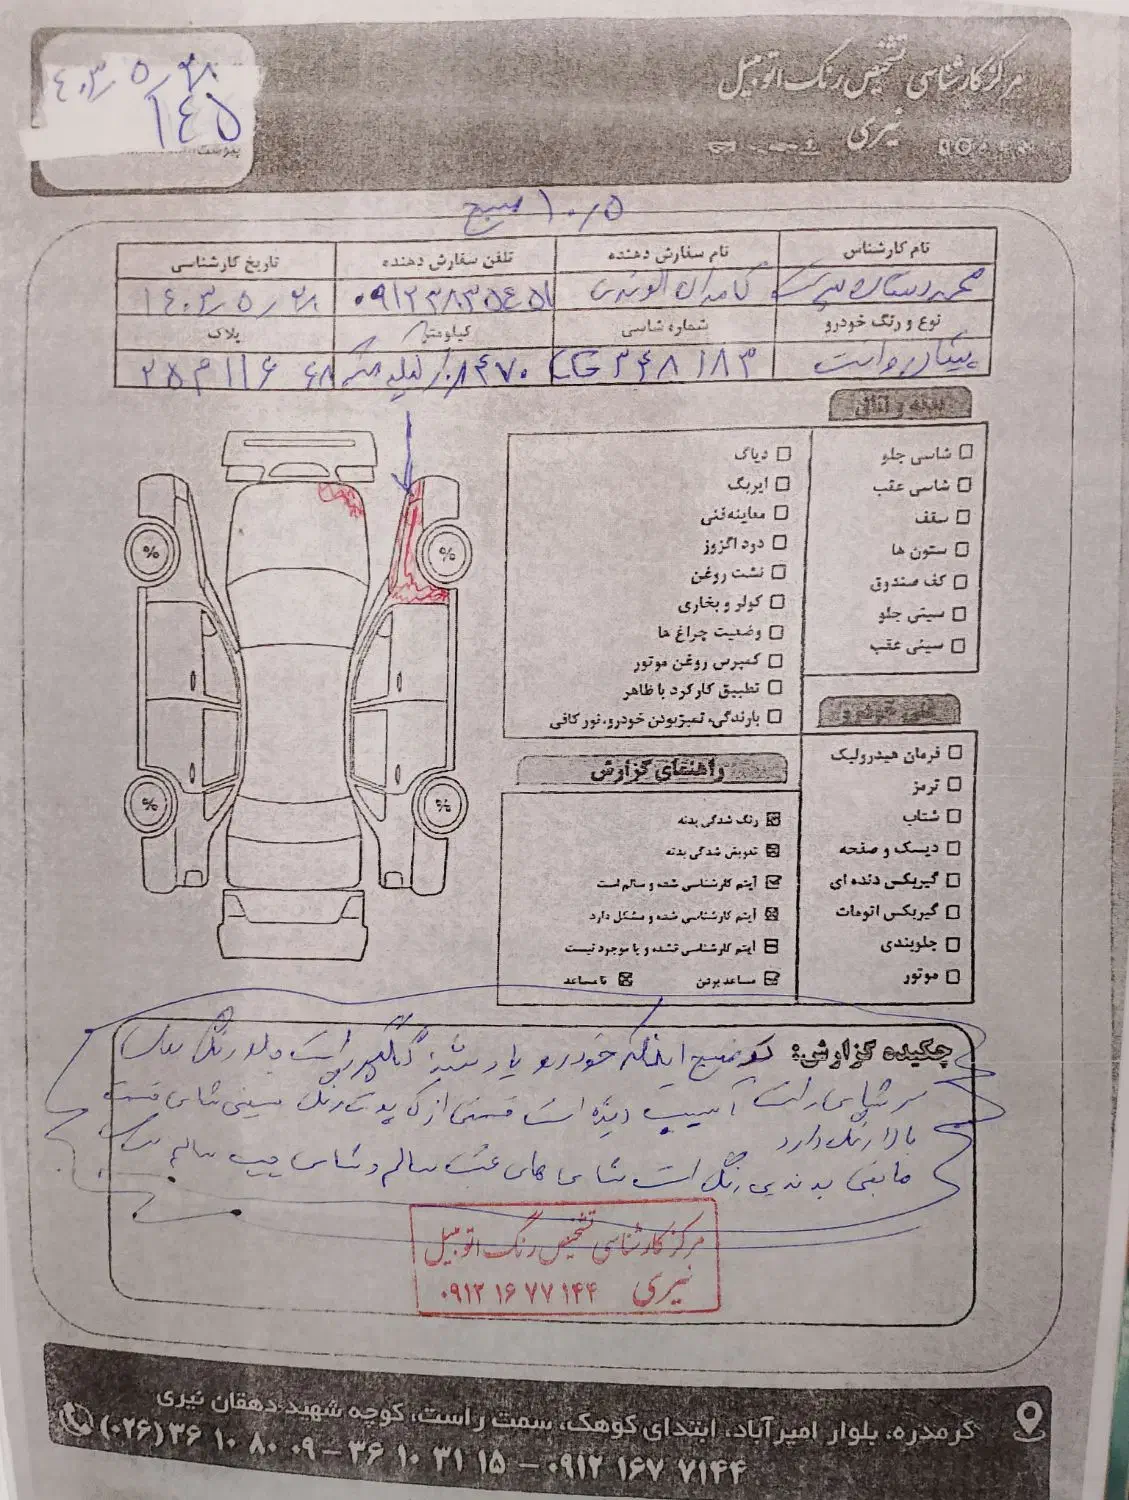 مرکز کارشناسی تشخیص رنگ اتومبیل
نیری
۴۰۳/۵/۲۸
۱۴۵
پیوست:
۱۰/۵ صبح
نام کارشناس
نام سفارش دهنده
تلفن سفارش دهنده
تاریخ کارشناسی
کامران الوندی
۰۹۱۲۳۸۳۵۴۵۱
۱۴۰۳/۵/۲۸
نوع و رنگ خودرو
شماره شاسی
کیلومتر
پلاک
۳۴۸۱۸۳
۸۴۷۰
۲۵۳م۱۱۶ ۶۸
بدنه و اتاق
شاسی جلو
شاسی عقب
سقف
ستون ها
کف صندوق
سینی جلو
سینی عقب
دیاگ
ایربگ
معاینه فنی
دود اگزوز
نشت روغن
کولر و بخاری
وضعیت چراغ ها
کمپرس روغن موتور
تطبیق کارکرد با ظاهر
بارندگی، تمیز بودن خودرو، نور کافی
فنی خودرو
فرمان هیدرولیک
ترمز
شتاب
دیسک و صفحه
گیربکس دنده ای
گیربکس اتومات
جلوبندی
موتور
راهنمای گزارش
رنگ شدگی بدنه
تعویض شدگی بدنه
آیتم کارشناسی شده و سالم است
آیتم کارشناسی شده و مشکل دارد
آیتم کارشناسی نشده و یا موجود نیست
مساعد بودن
نامساعد
%
%
%
%
چکیده گزارش: توضیح اینکه خودرو یاد شده گلگیر راست جلو رنگ
سر شاسی راست آسیب دیده است قسمتی از کاپوت رنگ سینی شاسی قسمت
بالا رنگ دارد
مابقی بدنه بی رنگ است شاسی های عقب سالم و شاسی چپ سالم
مرکز کارشناسی تشخیص رنگ اتومبیل
نیری ۰۹۱۲ ۱۶ ۷۷ ۱۴۴
گرمدره، بلوار امیرآباد، ابتدای کوهک، سمت راست، کوچه شهید دهقان نیری
(۰۲۶) ۳۶ ۱۰ ۸۰ ۰۹ - ۳۶ ۱۰ ۳۱ ۱۵ - ۰۹۱۲ ۱۶۷ ۷۱۴۴